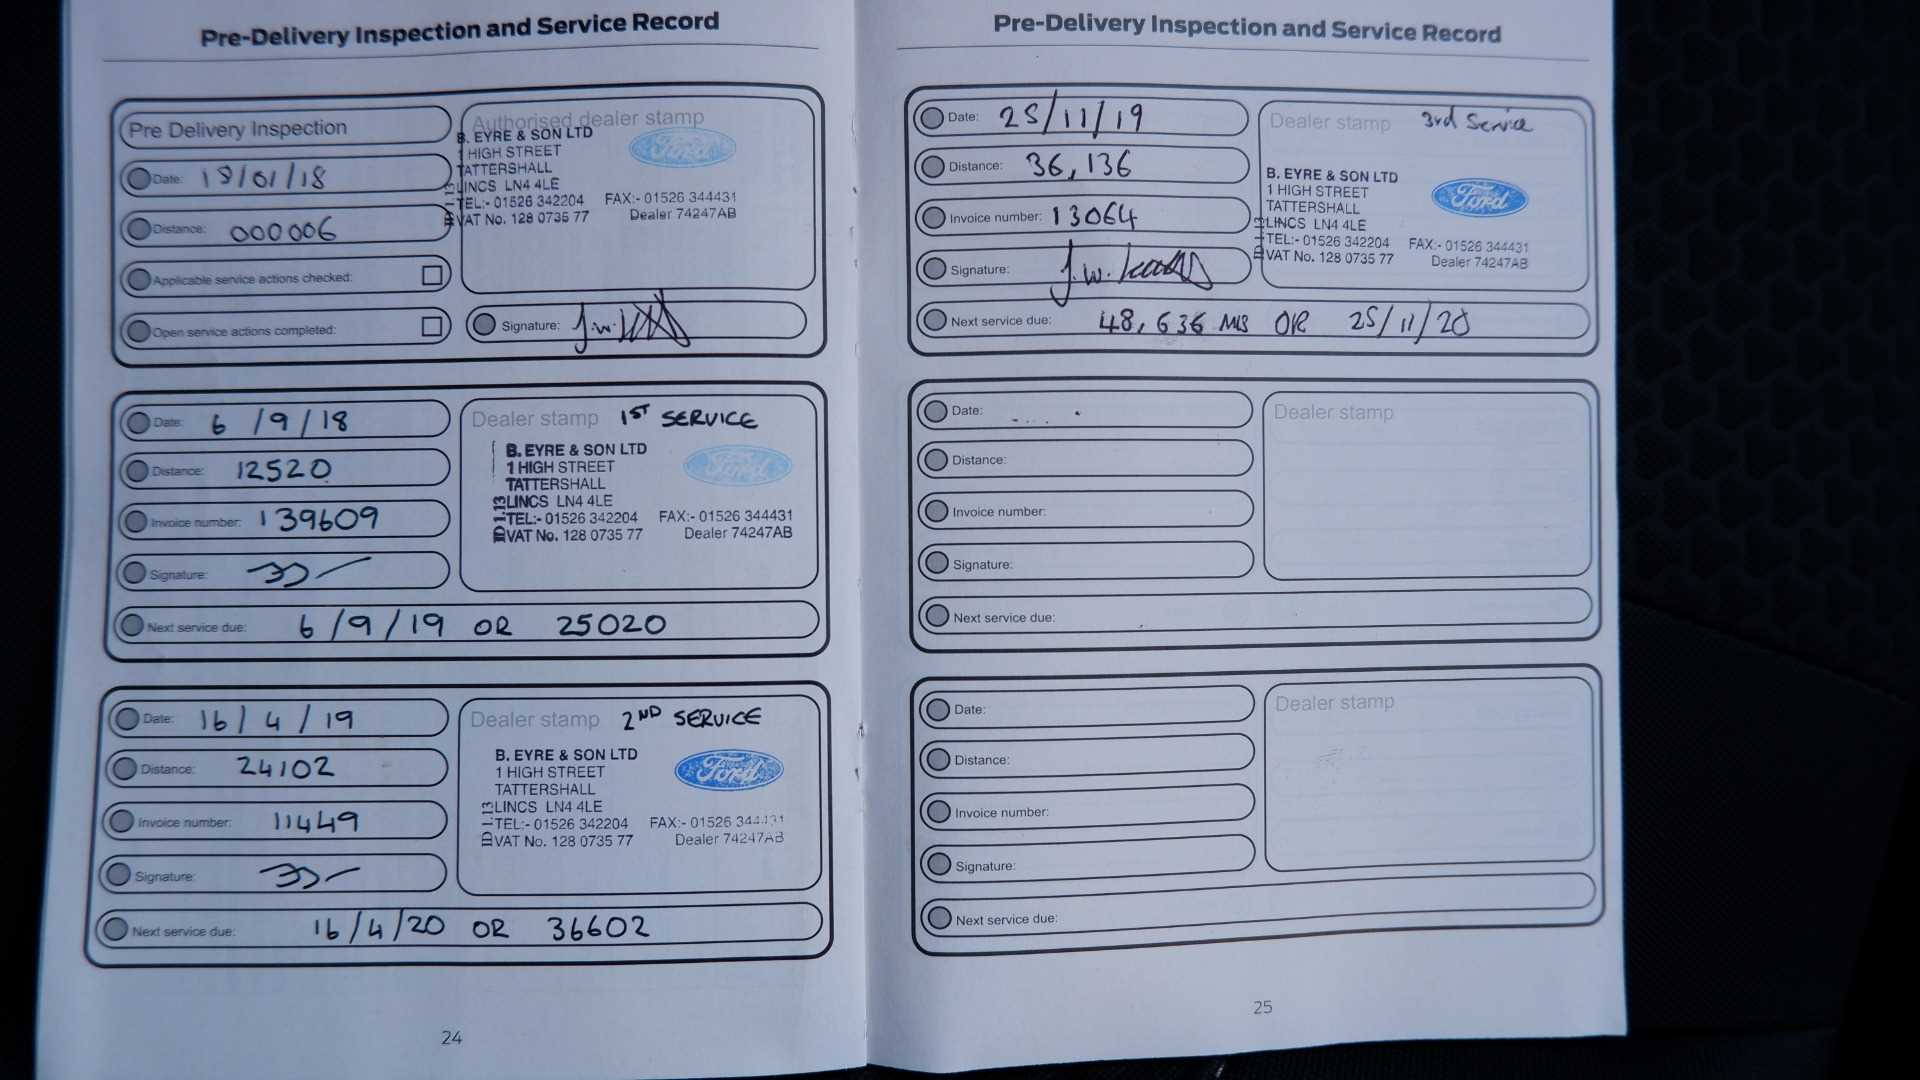 Pre-Delivery Inspection and Service Record
Pre Delivery Inspection
Date: 18/01/18
Distance: 000006
Applicable service actions checked:
Open service actions completed:
Authorised dealer stamp
B. EYRE & SON LTD
1 HIGH STREET
TATTERSHALL
LINCS LN4 4LE
TEL:- 01526 342204 FAX:- 01526 344431
VAT No. 128 0735 77 Dealer 74247AB
Ford
Signature:
Date: 6/9/18
Distance: 12520
Invoice number: 139609
Signature:
Next service due: 6/9/19 OR 25020
Dealer stamp 1ST SERVICE
B. EYRE & SON LTD
1 HIGH STREET
TATTERSHALL
LINCS LN4 4LE
TEL:- 01526 342204 FAX:- 01526 344431
VAT No. 128 0735 77 Dealer 74247AB
Ford
Date: 16/4/19
Distance: 24102
Invoice number: 11449
Signature:
Next service due: 16/4/20 OR 36602
Dealer stamp 2ND SERVICE
B. EYRE & SON LTD
1 HIGH STREET
TATTERSHALL
LINCS LN4 4LE
TEL:- 01526 342204 FAX:- 01526 344431
VAT No. 128 0735 77 Dealer 74247AB
Ford
24
Pre-Delivery Inspection and Service Record
Date: 25/11/19
Distance: 36,136
Invoice number: 13064
Signature:
Next service due: 48,636 MLS OR 25/11/20
Dealer stamp 3rd Service
B. EYRE & SON LTD
1 HIGH STREET
TATTERSHALL
LINCS LN4 4LE
TEL:- 01526 342204 FAX:- 01526 344431
VAT No. 128 0735 77 Dealer 74247AB
Ford
Date:
Distance:
Invoice number:
Signature:
Next service due:
Dealer stamp
Date:
Distance:
Invoice number:
Signature:
Next service due:
Dealer stamp
25